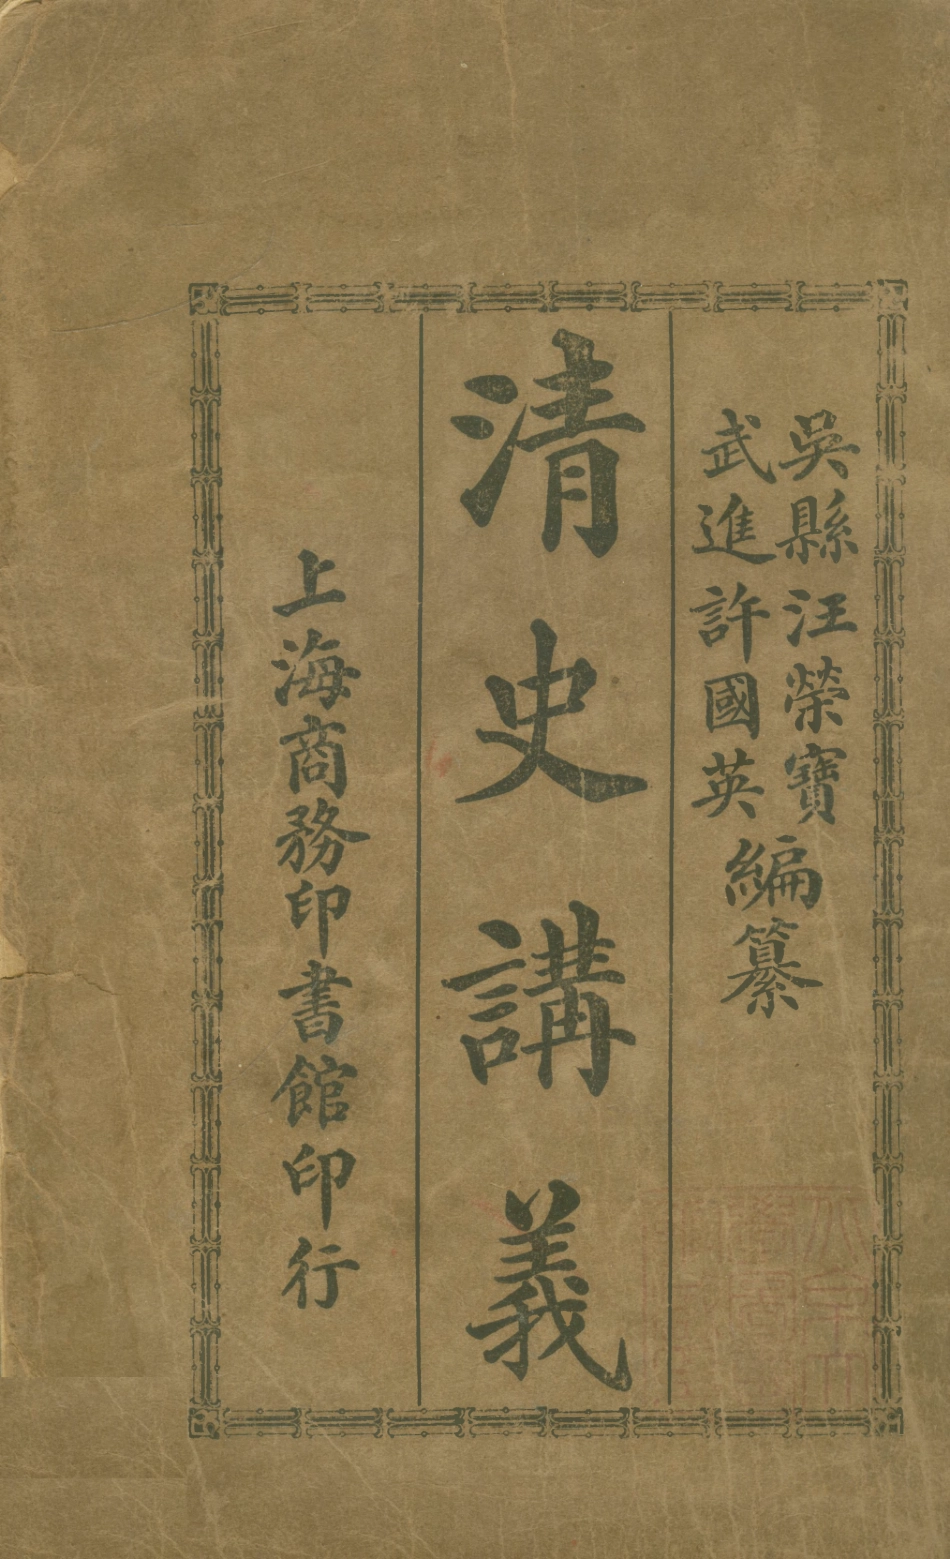 吳縣汪榮寶
武進許國英
編纂
清史講義
上海商務印書館印行